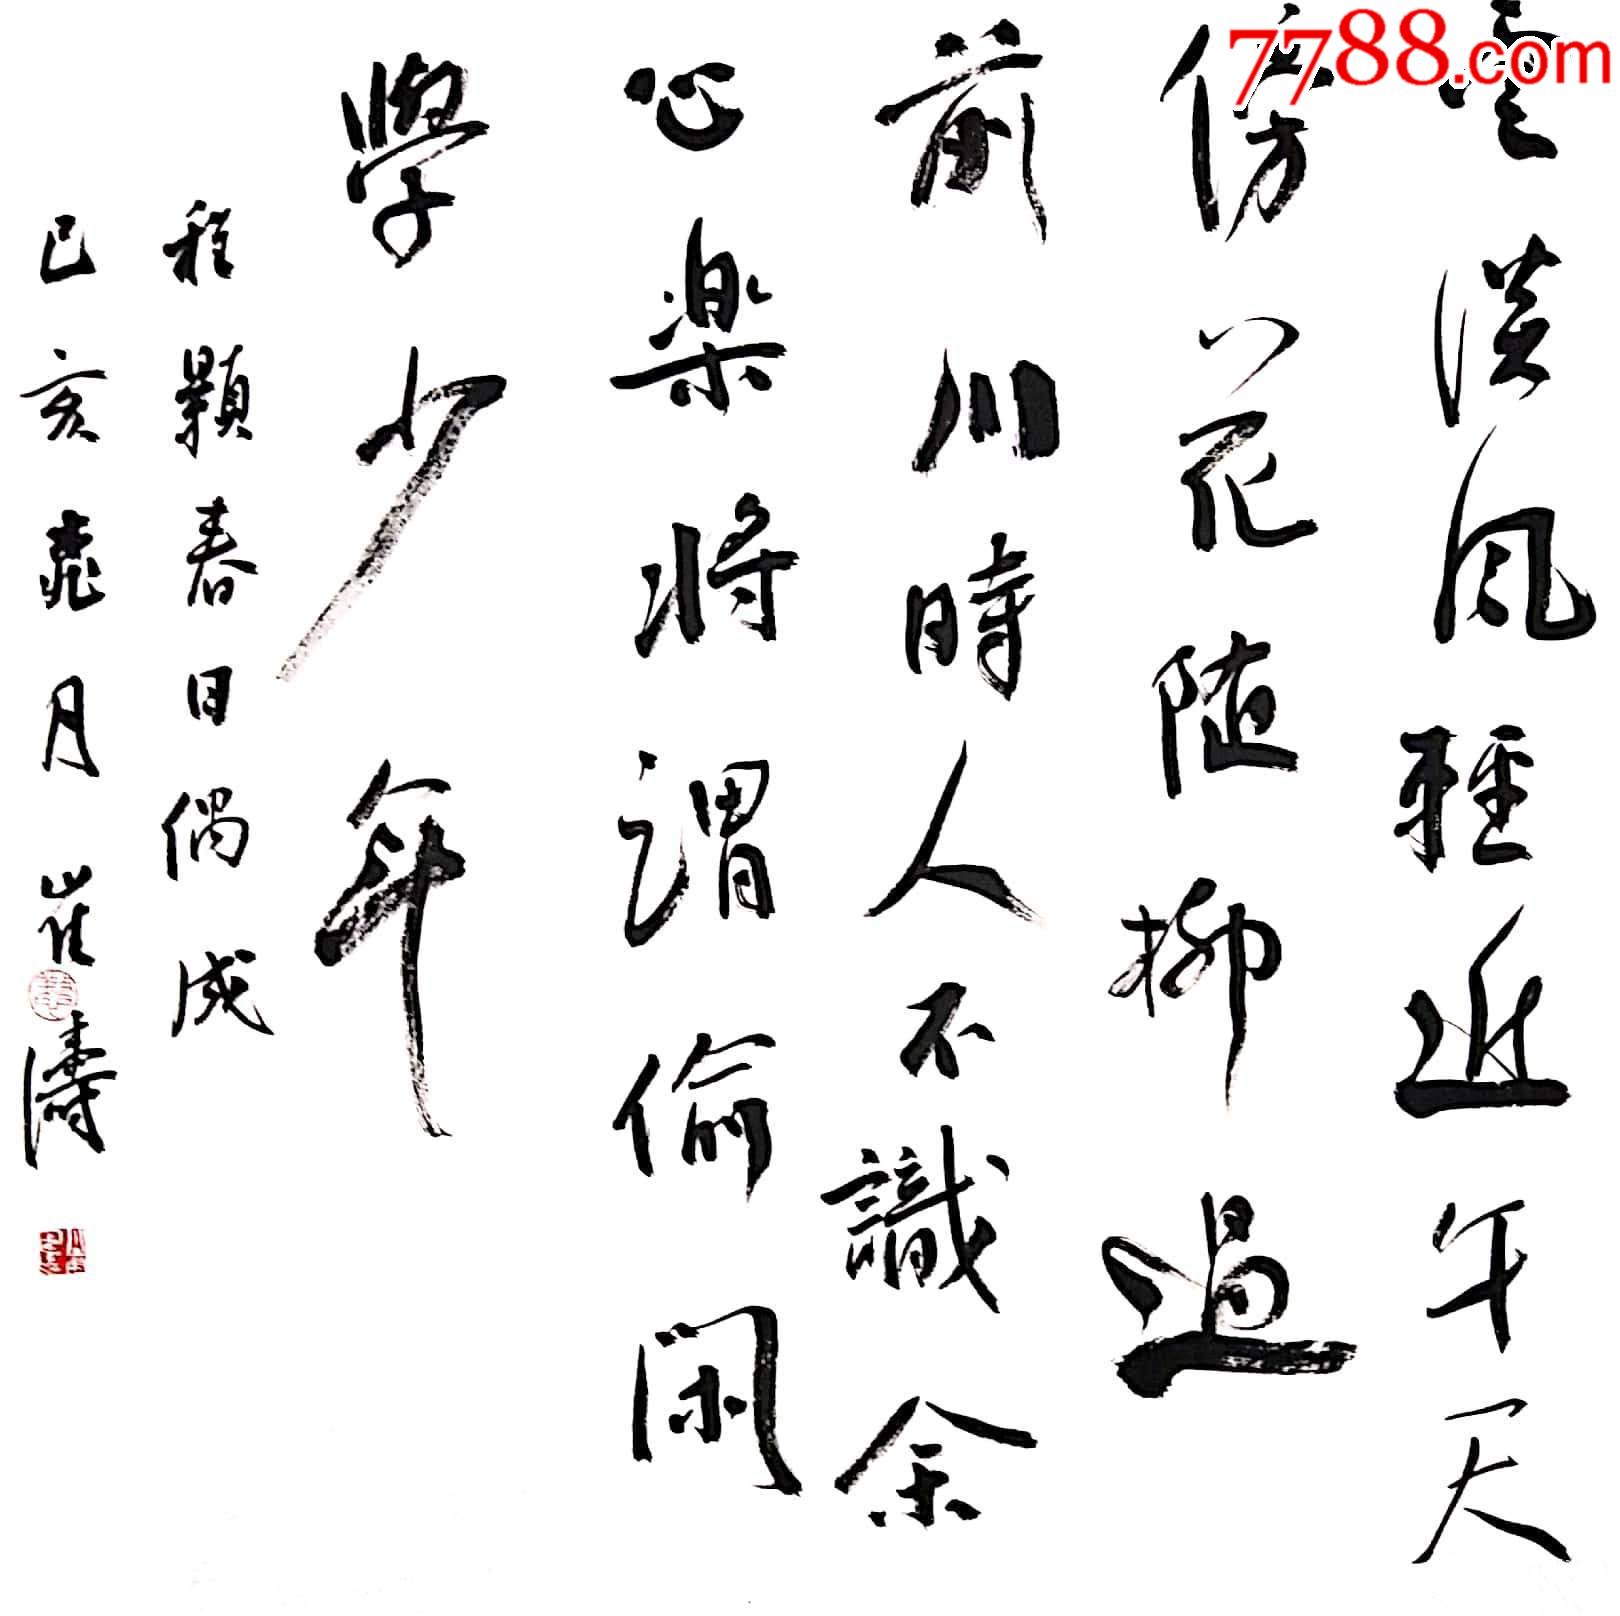 7788.com
雲淡風輕近午天
傍花随柳過
前川時人不識余
心楽将謂偷閑
學少年
程顥春日偶成
己亥桃月 崔濤